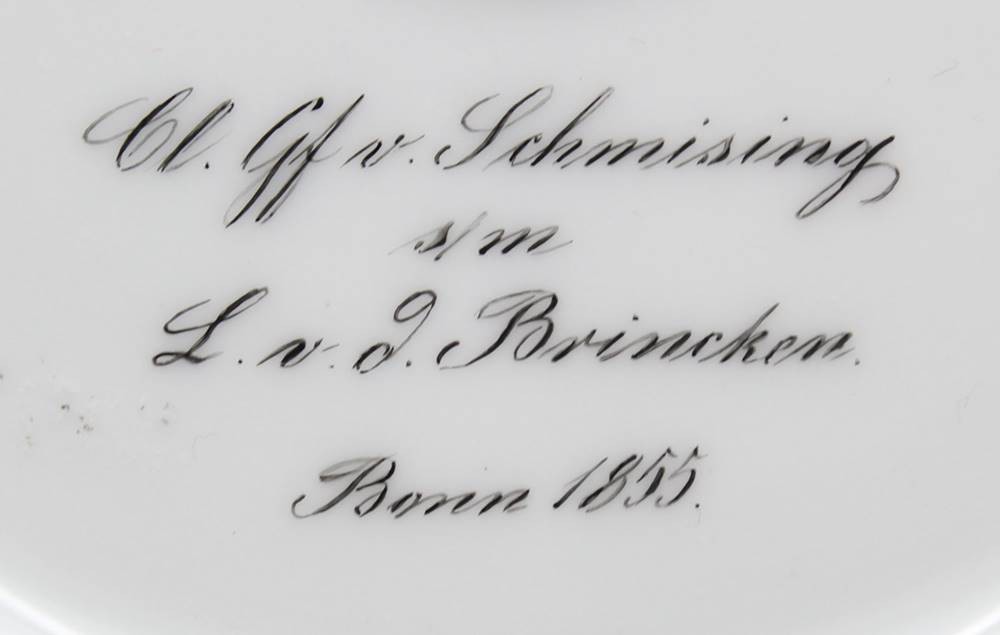 Cl. Gf v. Schmising
s/m
L. v. d. Brincken.
Bonn 1855.